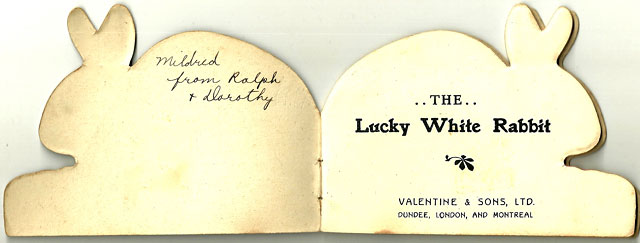 Mildred
from Ralph
+ Dorothy
..THE..
Lucky White Rabbit
VALENTINE & SONS, LTD.
DUNDEE, LONDON, AND MONTREAL